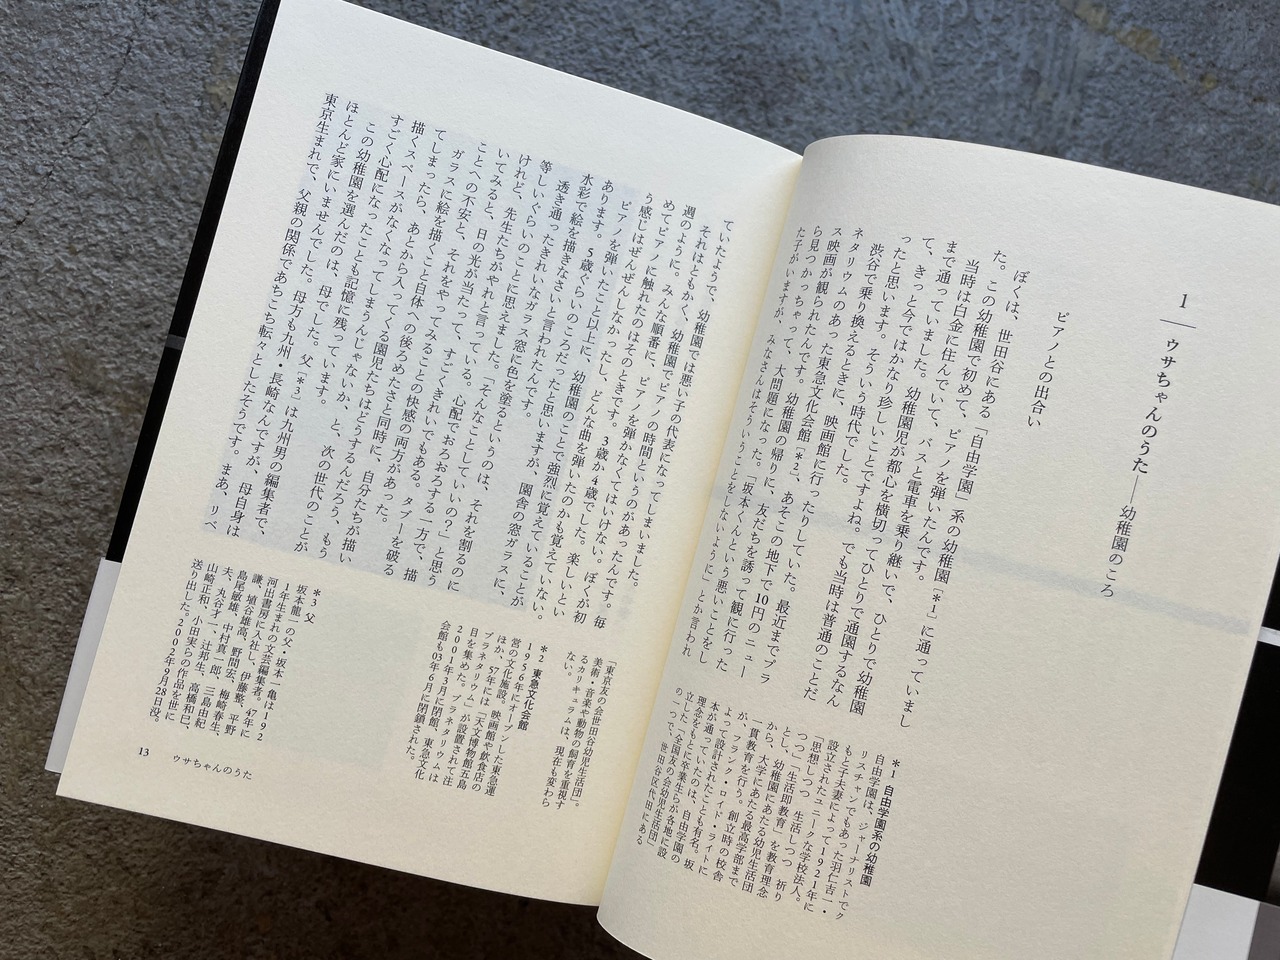 1 ── ウサちゃんのうた──幼稚園のころ
ピアノとの出合い
ぼくは、世田谷にある「自由学園」系の幼稚園［*1］に通っていまし
た。この幼稚園で初めて、ピアノを弾いたんです。
当時は白金に住んでいて、バスと電車を乗り継いで、ひとりで幼稚園
まで通っていました。幼稚園児が都心を横切ってひとりで通園するなん
て、きっと今ではかなり珍しいことですよね。でも当時は普通のことだ
ったと思います。そういう時代でした。
渋谷で乗り換えるときに、映画館に行ったりしていた。最近までプラ
ネタリウムのあった東急文化会館［*2］、あそこの地下で10円のニュー
ス映画が観られたんです。幼稚園の帰りに、友だちを誘って観に行った
ら見つかっちゃって、大問題になった。「坂本くんという悪いことをし
た子がいますが、みなさんはそういうことをしないように」とか言われ
*1 自由学園系の幼稚園
自由学園は、ジャーナリストでク
リスチャンでもあった羽仁吉一・
もと子夫妻によって1921年に
設立されたユニークな学校法人。
「思想しつつ 生活しつつ 祈り
つつ」「生活即教育」を教育理念
とし、幼稚園にあたる幼児生活団
から、大学にあたる最高学部まで
一貫教育を行う。創立時の校舎
が、フランク・ロイド・ライトに
よって設計されたことも有名。坂
本が通っていたのは、自由学園の
理念をもとに卒業生らが各地に設
立した「全国友の会幼児生活団」
の一つで、世田谷区代田にある
ていたようで、幼稚園では悪い子の代表になってしまいました。
それはともかく、幼稚園でピアノの時間というのがあったんです。毎
週のように。みんな順番に、ピアノを弾かなくてはいけない。ぼくが初
めてピアノに触れたのはそのときです。3歳か4歳でした。楽しいとい
う感じはぜんぜんしなかったし、どんな曲を弾いたのかも覚えていない。
ピアノを弾いたこと以上に、幼稚園のことで強烈に覚えていることが
あります。5歳ぐらいのころだったと思いますが、園舎の窓ガラスに、
水彩で絵を描きなさいと言われたんです。
透き通ったきれいなガラス窓に色を塗るというのは、それを割るのに
等しいぐらいのことに思えました。「そんなことしていいの?」と思う
けれど、先生たちがやれと言っている。心配でおろおろする一方で、描
いてみると、日の光が当たって、すごくきれいでもある。タブーを破る
ことへの不安と、それをやってみることの快感の両方があった。
ガラスに絵を描くこと自体への後ろめたさと同時に、自分たちが描い
てしまったら、あとから入ってくる園児たちはどうするんだろう、もう
描くスペースがなくなってしまうんじゃないか、と、次の世代のことが
すごく心配になったことも記憶に残っています。
この幼稚園を選んだのは、母でした。父［*3］は九州男の編集者で、
ほとんど家にいませんでした。母方も九州・長崎なんですが、母自身は
東京生まれで、父親の関係であちこち転々としたそうです。まあ、リベ
「東京友の会世田谷幼児生活団」。
美術・音楽や動物の飼育を重視す
るカリキュラムは、現在も変わら
ない。
*2 東急文化会館
1956年にオープンした東急運
営の文化施設。映画館や飲食店の
ほか、57年には「天文博物館五島
プラネタリウム」が設置されて注
目を集めた。プラネタリウムは
2001年3月に閉館、東急文化
会館も03年6月に閉鎖された。
*3 父
坂本龍一の父・坂本一亀は192
1年生まれの文芸編集者。47年に
河出書房に入社し、伊藤整、平野
謙、埴谷雄高、野間宏、椎名麟三、
島尾敏雄、中村真一郎、梅崎春生、
夫、丸谷才一、辻邦生、三島由紀
山崎正和、小田実らの作品を世に
送り出した。2002年9月28日没。
13
ウサちゃんのうた